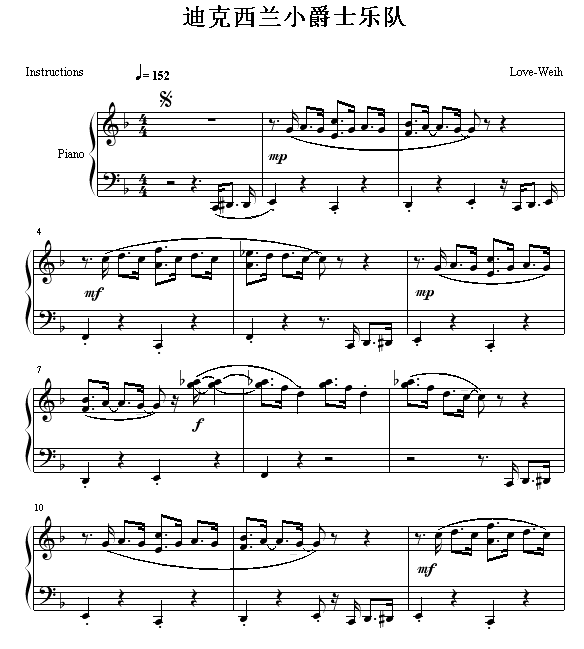 迪克西兰小爵士乐队
Instructions
♩= 152
Love-Weih
Piano
4
4
4
4
mp
4
mf
mp
7
f
10
mf